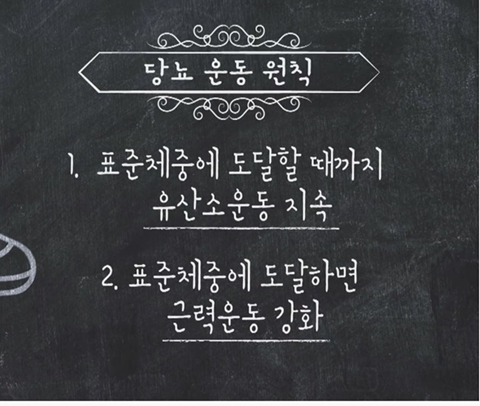 당뇨 운동 원칙
1. 표준체중에 도달할 때까지
유산소운동 지속
2. 표준체중에 도달하면
근력운동 강화